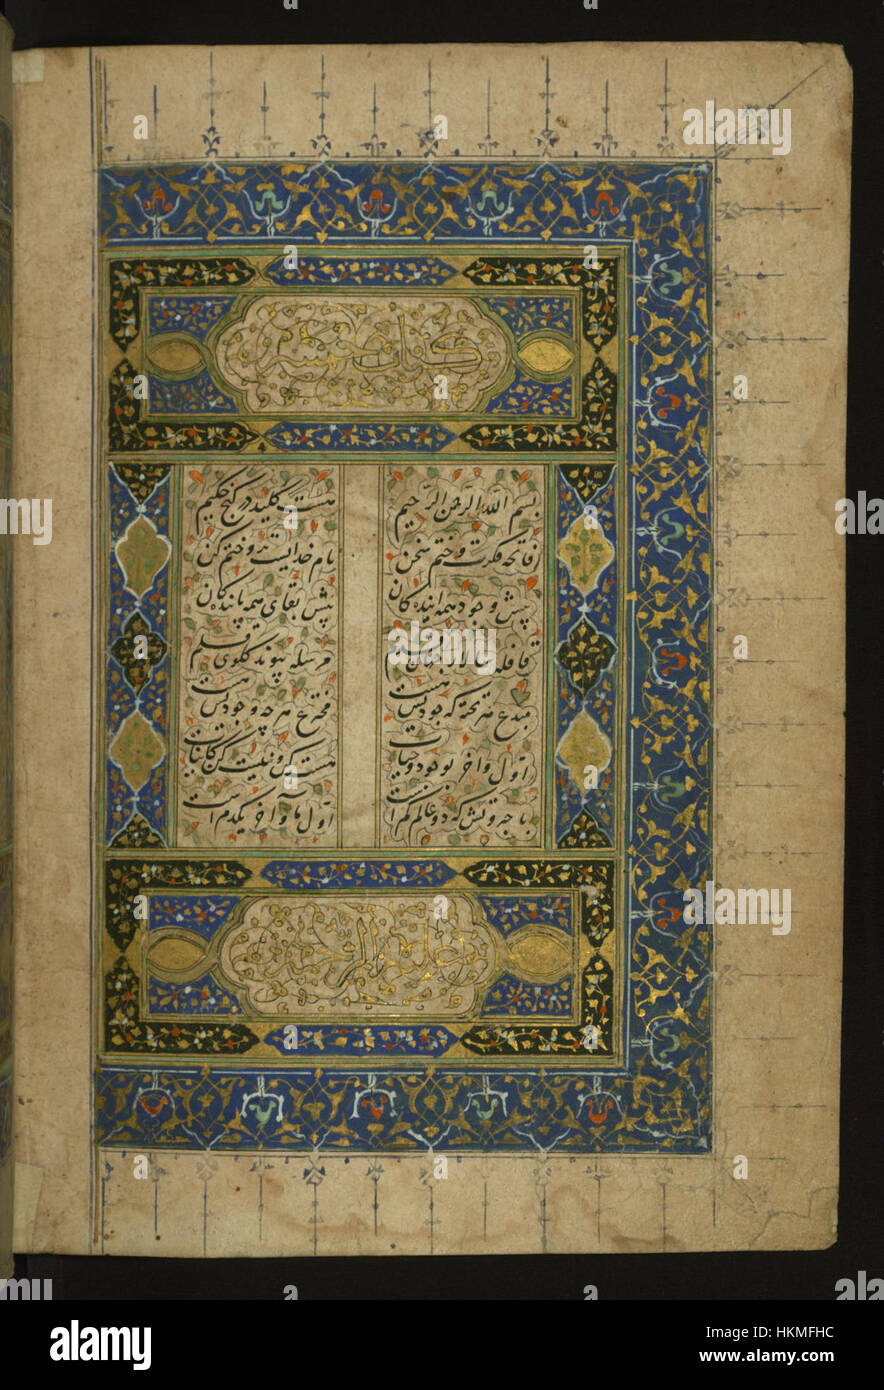 کتاب خمسه
بسم الله الرحمن الرحیم هست کلید در گنج حکیم
فاتحه فکرت و ختم سخن نام خدایست برو ختم کن
پیش وجود همه آیندگان پیش بقای همه پایندگان
قافله سالار جهان قدم مرسله پیوند گلوی قلم
مبدع هر چشمه که جودیش هست مخترع هر چه وجودیش هست
اول و آخر بوجود و حیات هست کن و نیست کن کاینات
با جبروتش که دو عالم کم است اول ما آخر ما یکدم است
alamy stock photo
HKMFHC
www.alamy.com